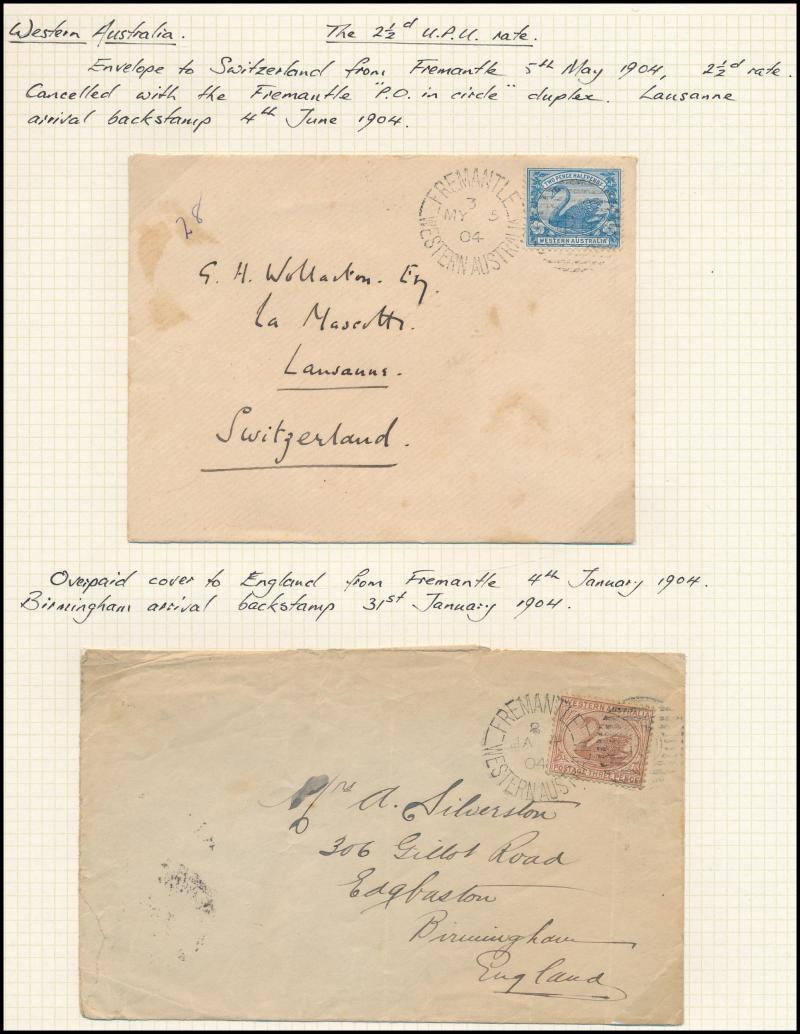 Western Australia. The 2½d U.P.U. rate.
Envelope to Switzerland from Fremantle 5th May 1904, 2½d rate.
Cancelled with the Fremantle "P.O. in circle" duplex. Lausanne
arrival backstamp 4th June 1904.
28
FREMANTLE
3
MY 5
04
WESTERN AUSTRALIA
TWO PENCE HALFPENNY
WESTERN AUSTRALIA
G. H. Wollaston. Esq.
La Mascotte.
Lausanne.
Switzerland.
Overpaid cover to England from Fremantle 4th January 1904.
Birmingham arrival backstamp 31st January 1904.
FREMANTLE
JA
04
WESTERN AUST
WESTERN AUSTRALIA
POSTAGE THREE PENCE
Mrs A. Silverston
306 Gillot Road
Edgbaston
Birmingham
England